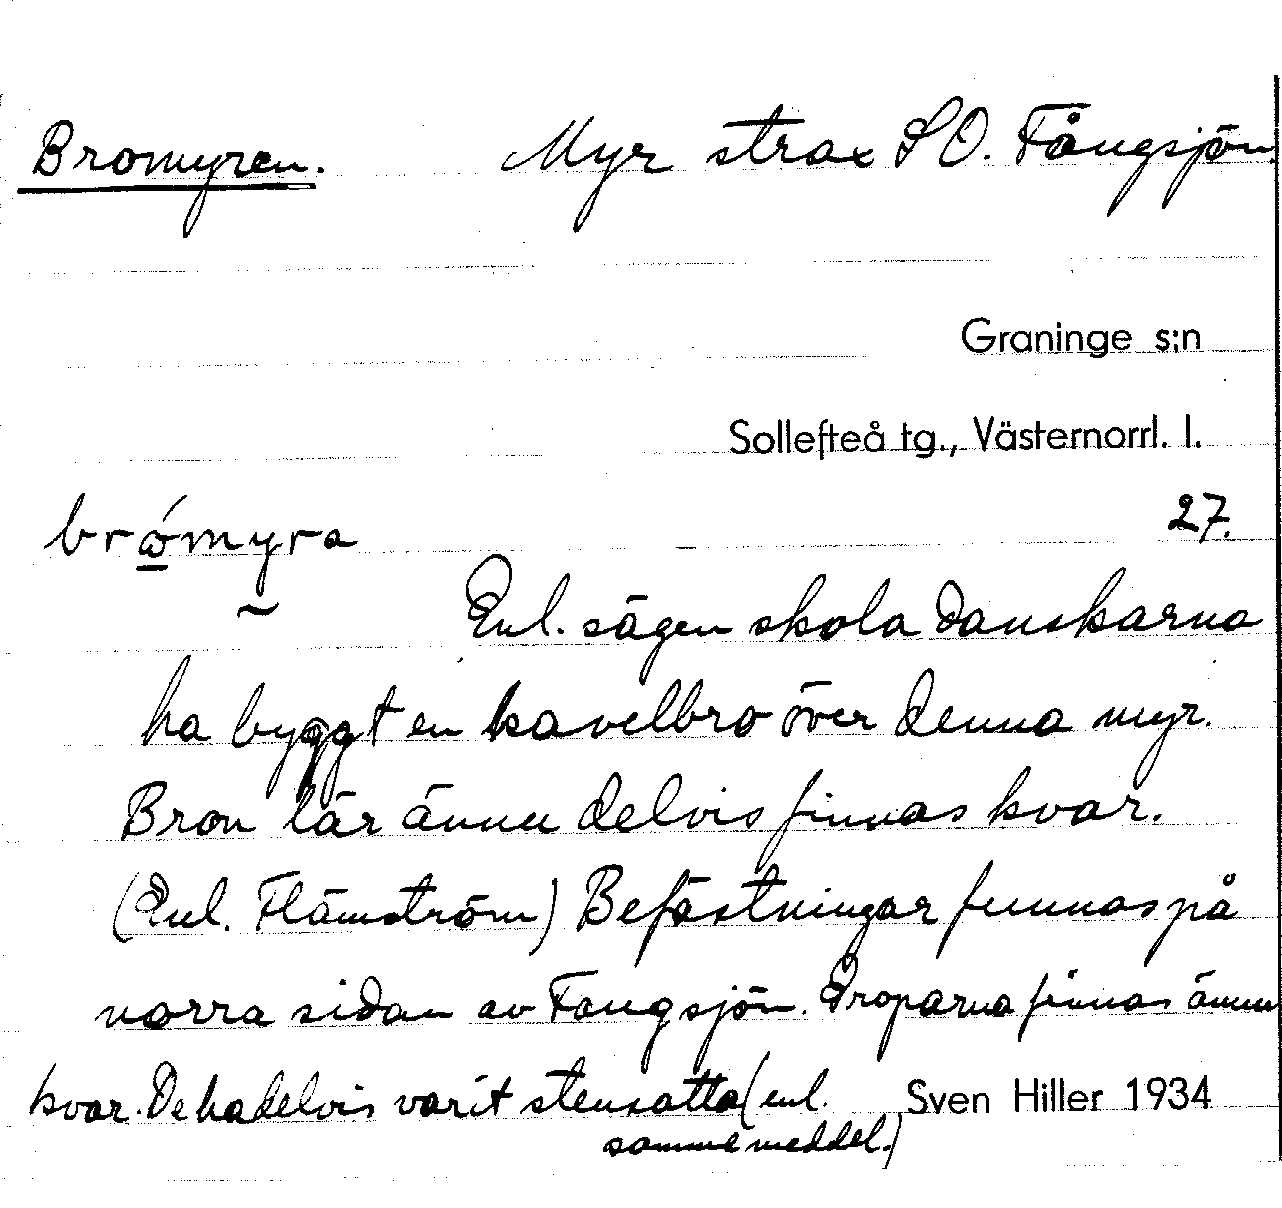 Bromyren. Myr strax SO. Fångsjön.
Graninge s:n
Sollefteå tg., Västernorrl. l.
brómyra 27.
Enl. sägen skola danskarna
ha byggt en kavelbro över denna myr.
Bron lär ännu delvis finnas kvar.
(Enl. Flämström) Befästningar funnos på
norra sidan av Fångsjön. Groparna finnas ännu
kvar. De ha delvis varit stensatta (enl. Sven Hiller 1934
samme meddel.)